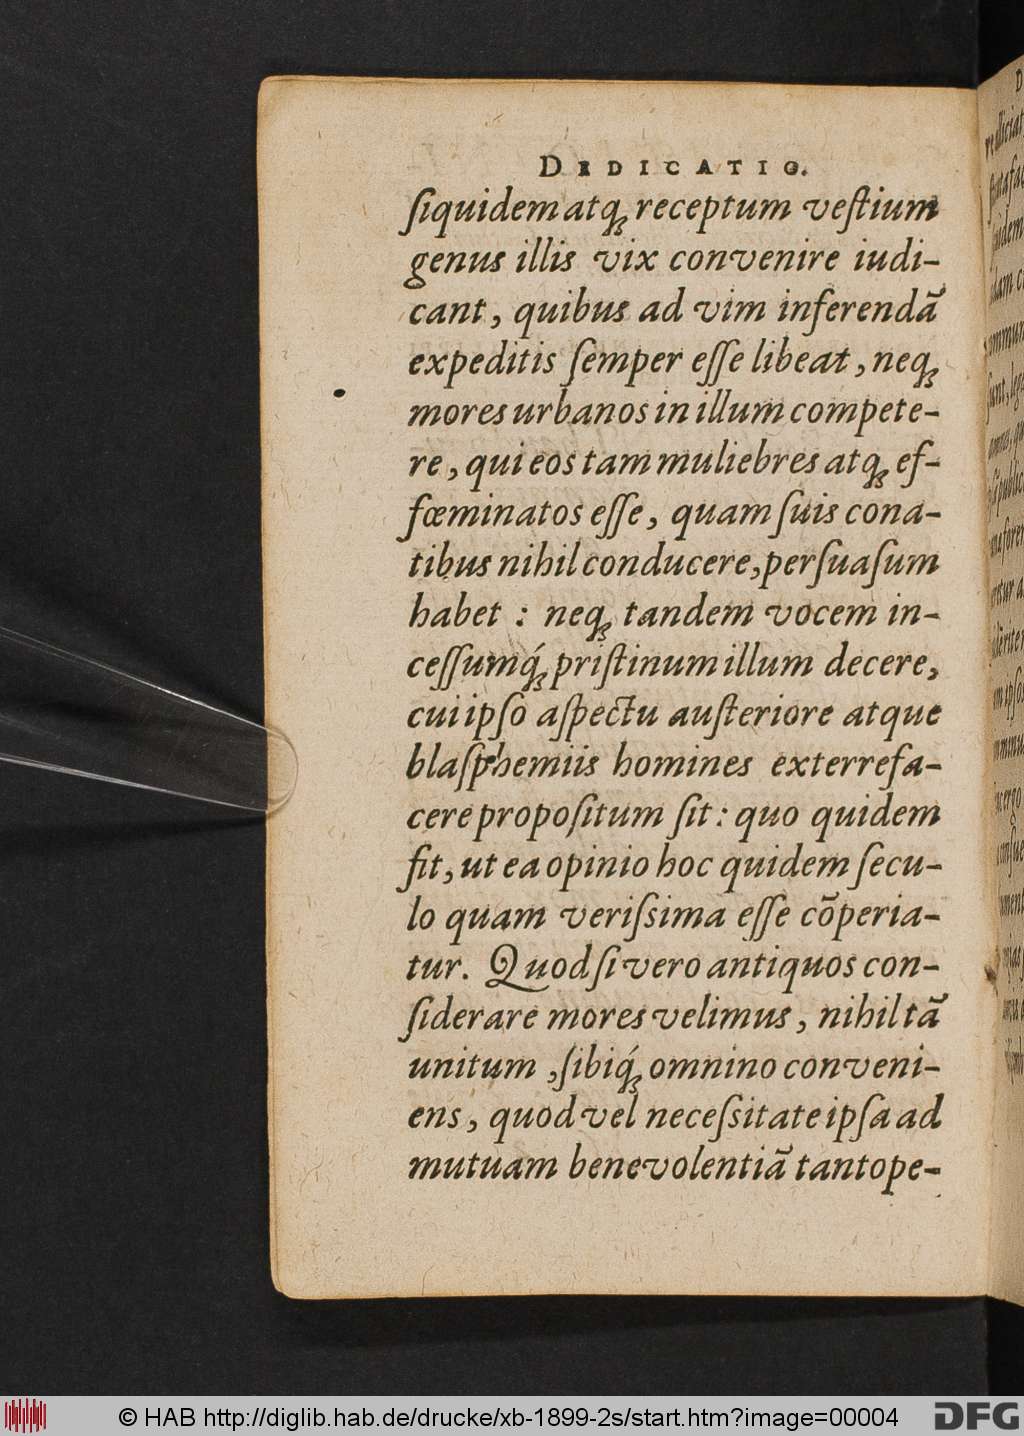 DEDICATIO.
ſiquidem atq́ꝫ receptum veſtium
genus illis vix convenire iudi-
cant, quibus ad vim inferendã
expeditis ſemper eſſe libeat, neqꝫ
mores urbanos in illum compete-
re, qui eos tam muliebres atqꝫ ef-
fœminatos eſſe, quam ſuis cona-
tibus nihil conducere, perſuaſum
habet : neqꝫ tandem vocem in-
ceſſumq́ꝫ priſtinum illum decere,
cui ipſo aſpectu auſteriore atque
blaſphemiis homines exterrefa-
cere propoſitum ſit : quo quidem
fit, ut ea opinio hoc quidem ſecu-
lo quam veriſsima eſſe cõperia-
tur. Quod ſi vero antiquos con-
ſiderare mores velimus, nihil tã
unitum, ſibiq́ꝫ omnino conveni-
ens, quod vel neceſsitate ipſa ad
mutuam benevolentiã tantope-
© HAB http://diglib.hab.de/drucke/xb-1899-2s/start.htm?image=00004
DFG